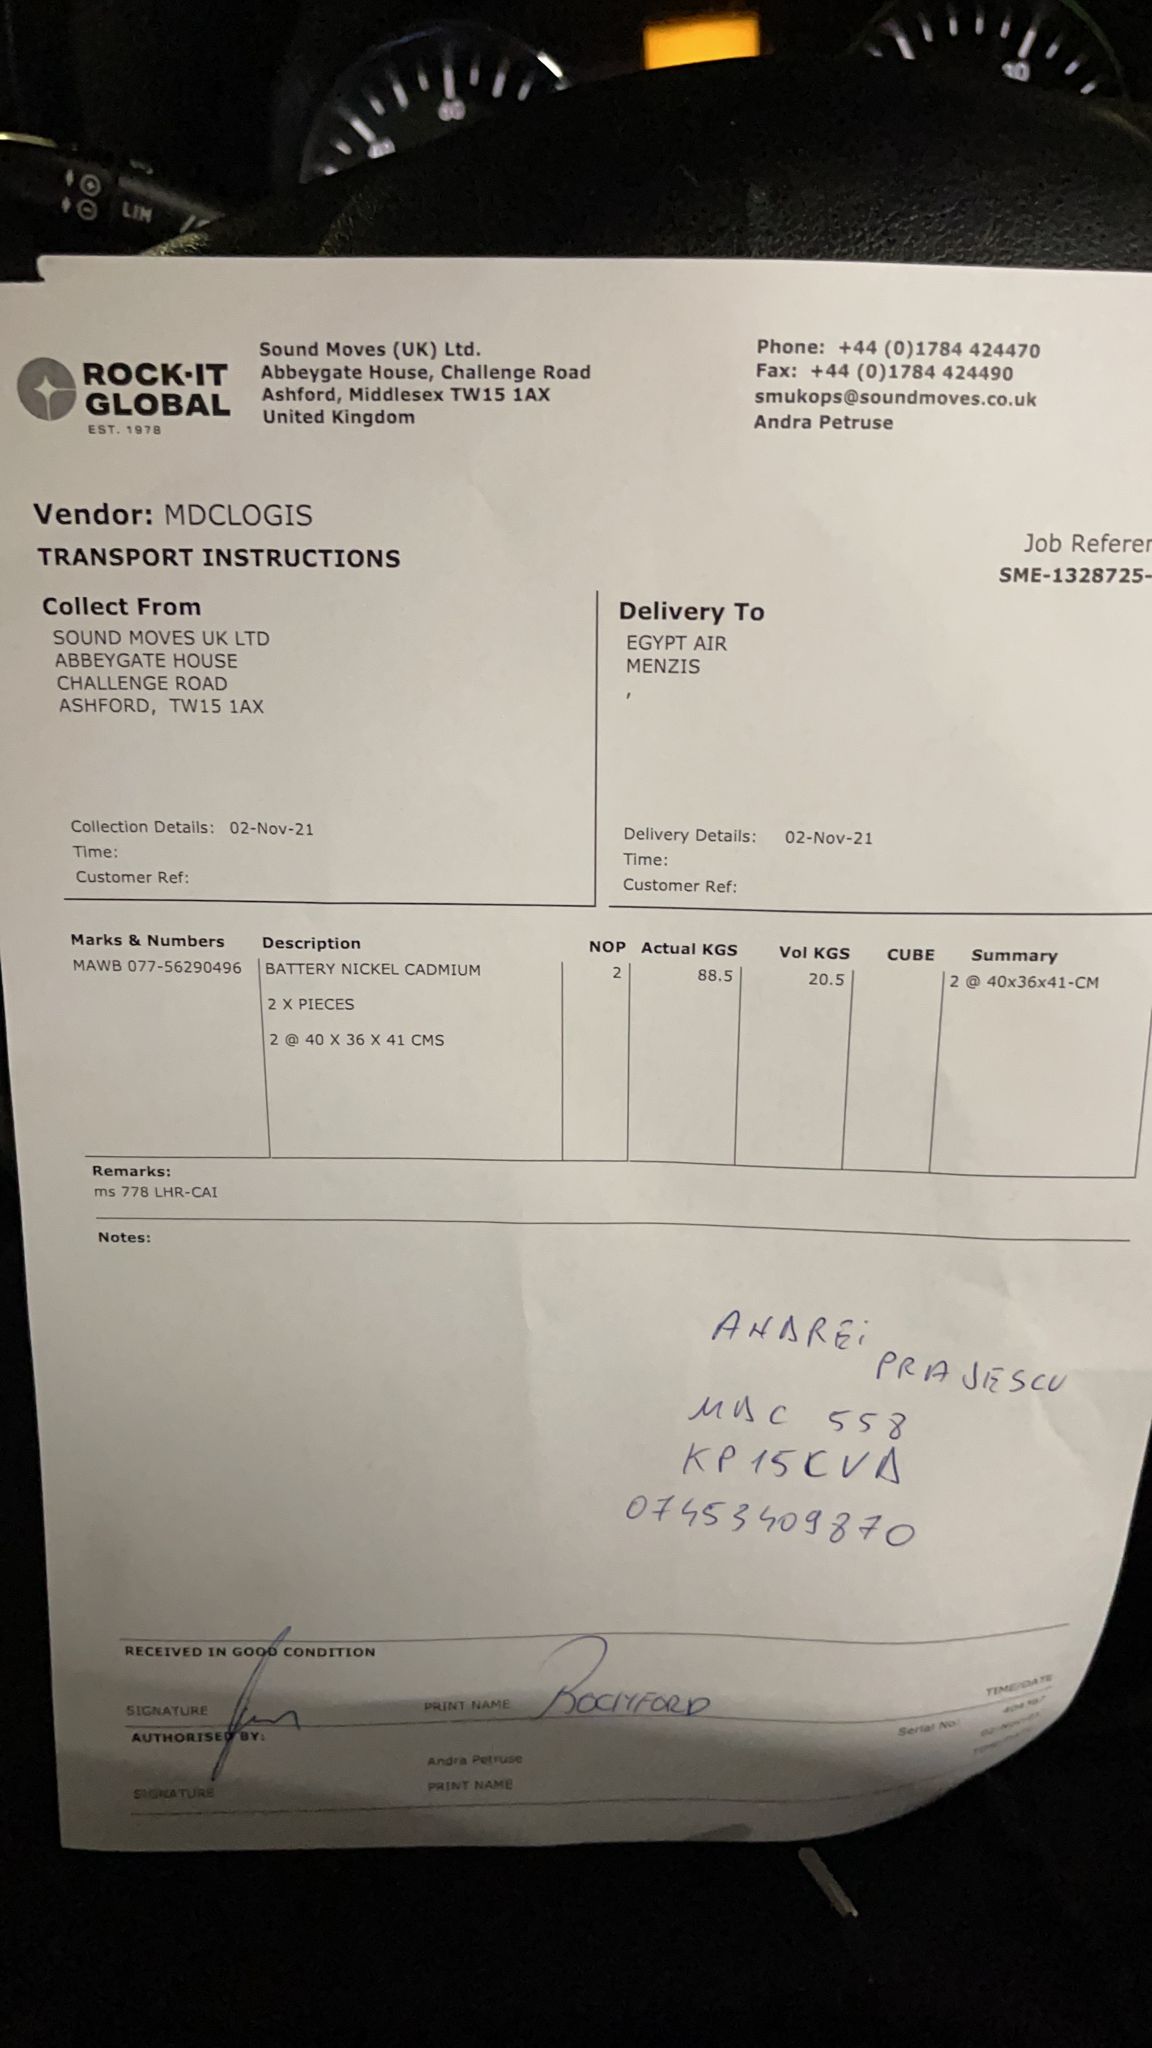 LIM
ROCK·IT
GLOBAL
EST. 1978
Sound Moves (UK) Ltd.
Abbeygate House, Challenge Road
Ashford, Middlesex TW15 1AX
United Kingdom
Phone: +44 (0)1784 424470
Fax: +44 (0)1784 424490
smukops@soundmoves.co.uk
Andra Petruse
Vendor: MDCLOGIS
TRANSPORT INSTRUCTIONS
Job Referen
SME-1328725-
Collect From
SOUND MOVES UK LTD
ABBEYGATE HOUSE
CHALLENGE ROAD
ASHFORD, TW15 1AX
Collection Details: 02-Nov-21
Time:
Customer Ref:
Delivery To
EGYPT AIR
MENZIS
,
Delivery Details: 02-Nov-21
Time:
Customer Ref:
Marks & Numbers Description NOP Actual KGS Vol KGS CUBE Summary
MAWB 077-56290496 BATTERY NICKEL CADMIUM 2 88.5 20.5 2 @ 40x36x41-CM
2 X PIECES
2 @ 40 X 36 X 41 CMS
Remarks:
ms 778 LHR-CAI
Notes:
ANDREi
PRAJESCU
MDC 558
KP15CVA
07453409870
RECEIVED IN GOOD CONDITION
SIGNATURE PRINT NAME ROCHFORD TIME/DATE
AUTHORISED BY: Serial No:
Andra Petruse
SIGNATURE PRINT NAME